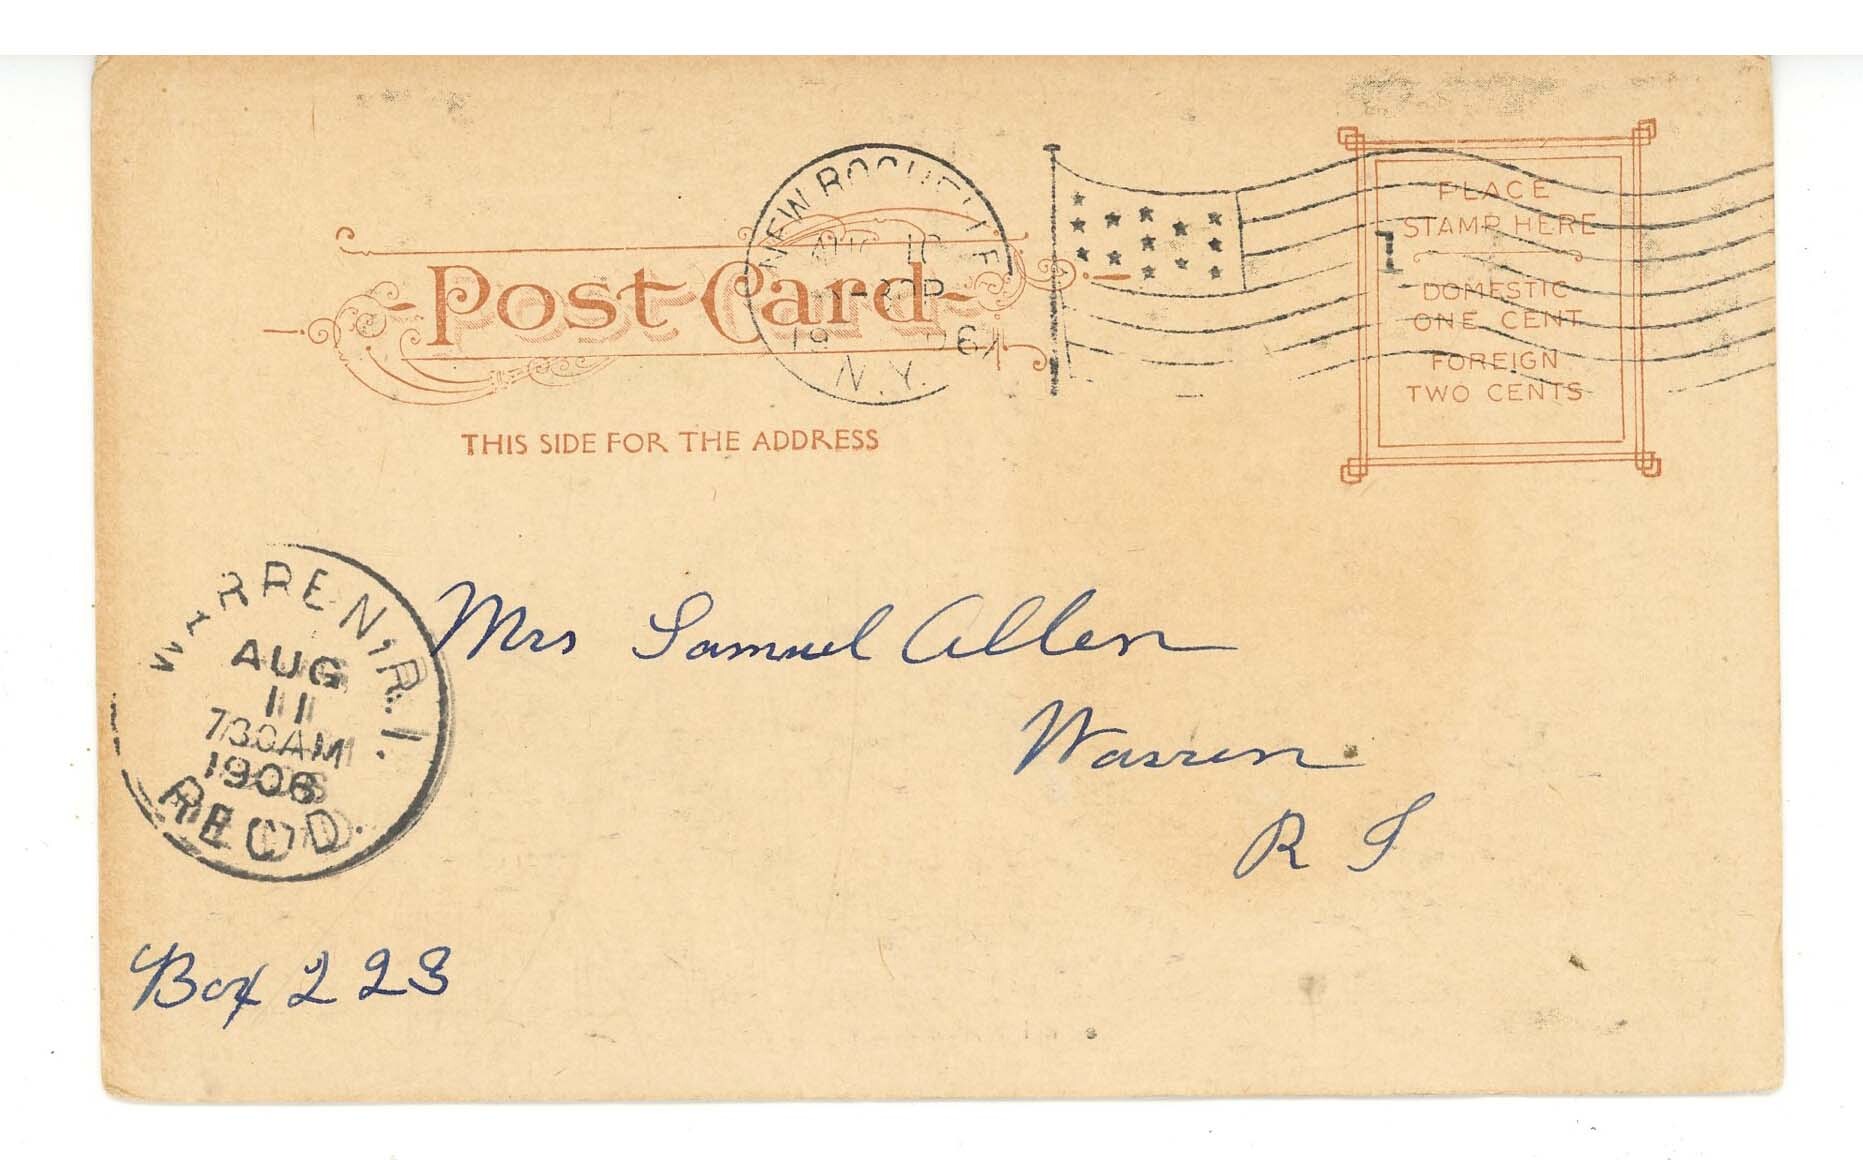 NEW ROCHELLE
AUG 10
-30P
1906
N.Y.
1
PLACE
STAMP HERE
DOMESTIC
ONE CENT
FOREIGN
TWO CENTS
Post Card
THIS SIDE FOR THE ADDRESS
WARREN, R.I.
AUG
11
730AM
1906
REC'D.
Mrs Samuel Allen
Warren
R I
Box 223